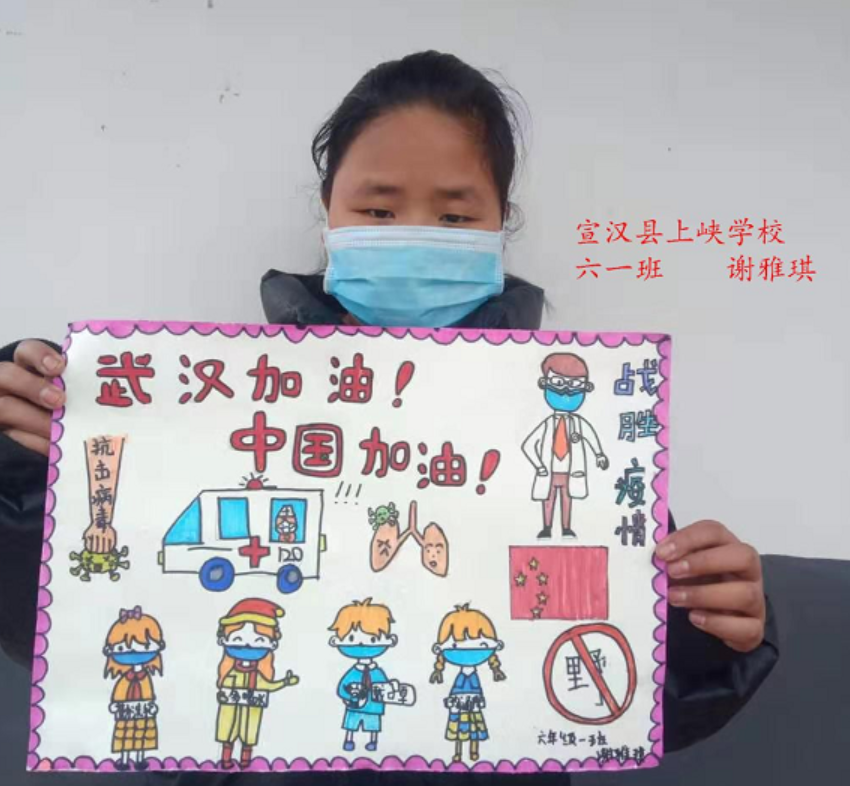 宣汉县上峡学校
六一班 谢雅琪
武汉加油!
中国加油!
战胜疫情
抗击病毒
!!!
120
野
六年级一班
谢雅琪